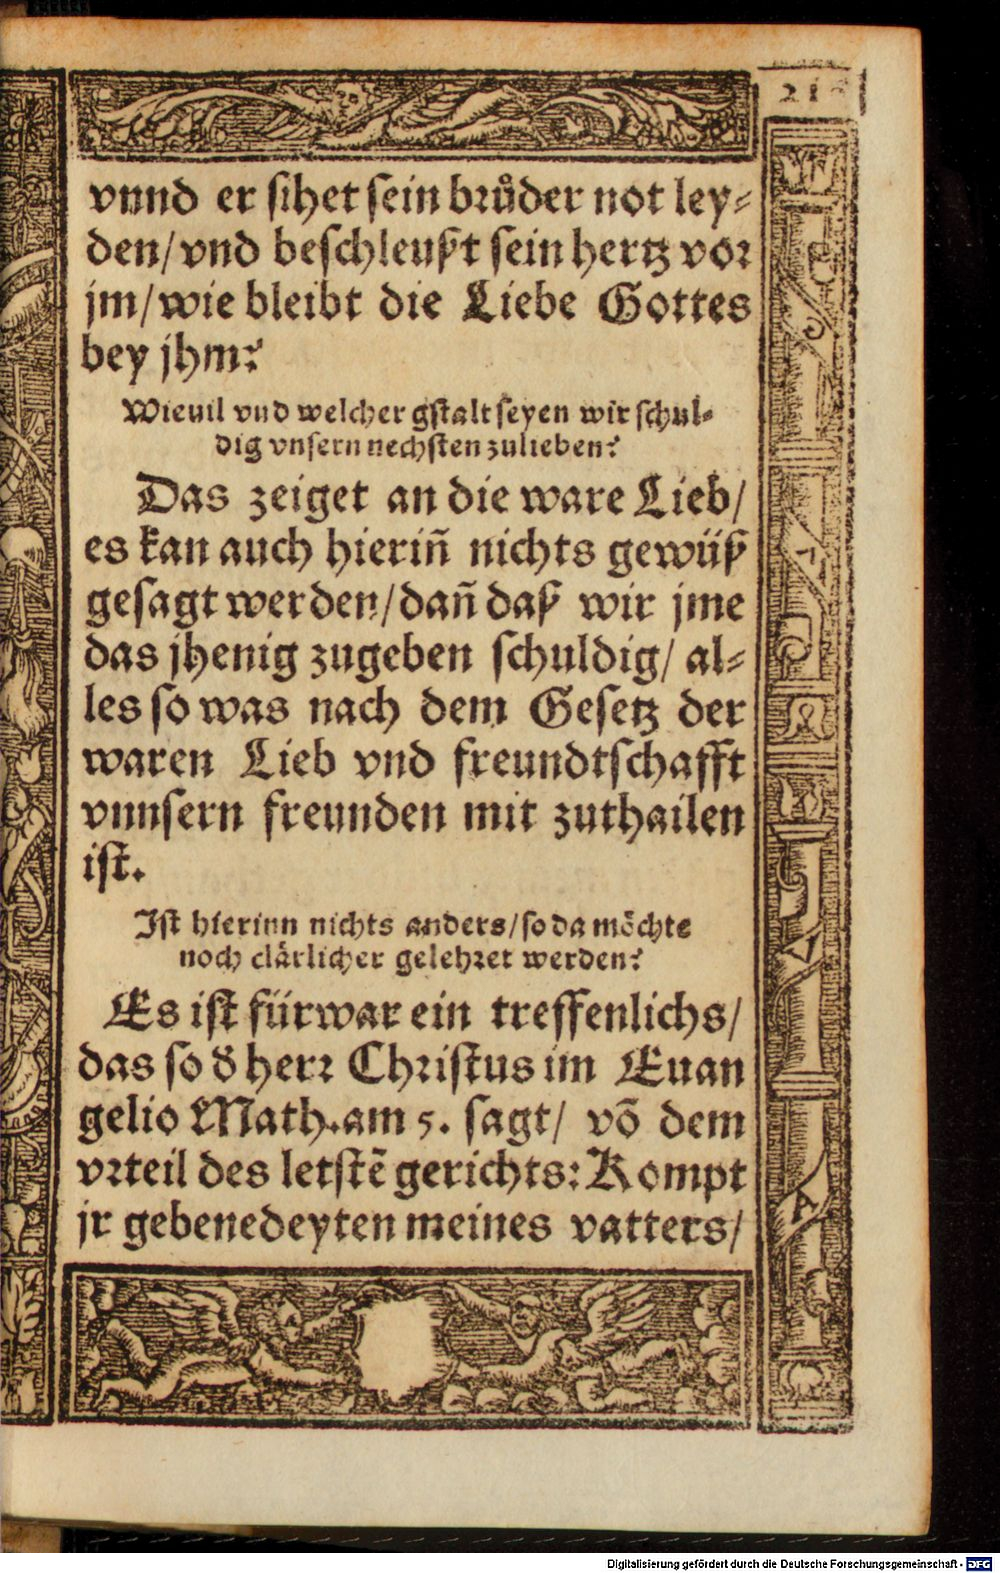 vnnd er sihet sein brůder not ley⸗
den/ vnd beschleußt sein hertz vor
jm/ wie bleibt die Liebe Gottes
bey jhm?
Wieuil vnd welcher gstalt seyen wir schul⸗
dig vnsern nechsten zulieben?
Das zeiget an die ware Lieb/
es kan auch hieriñ nichts gewüß
gesagt werden/ dañ daß wir jme
das jhenig zugeben schuldig/ al⸗
les so was nach dem Gesetz der
waren Lieb vnd freundtschafft
vnnsern freunden mit zuthailen
ist.
Ist hierinn nichts anders/ so da möchte
noch clärlicher gelehret werden?
Es ist fürwar ein treffenlichs/
das so d̕ herr Christus im Euan
gelio Math. am 5. sagt/ võ dem
vrteil des letstẽ gerichts: Kompt
jr gebenedeyten meines vatters/
Digitalisierung gefördert durch die Deutsche Forschungsgemeinschaft - DFG